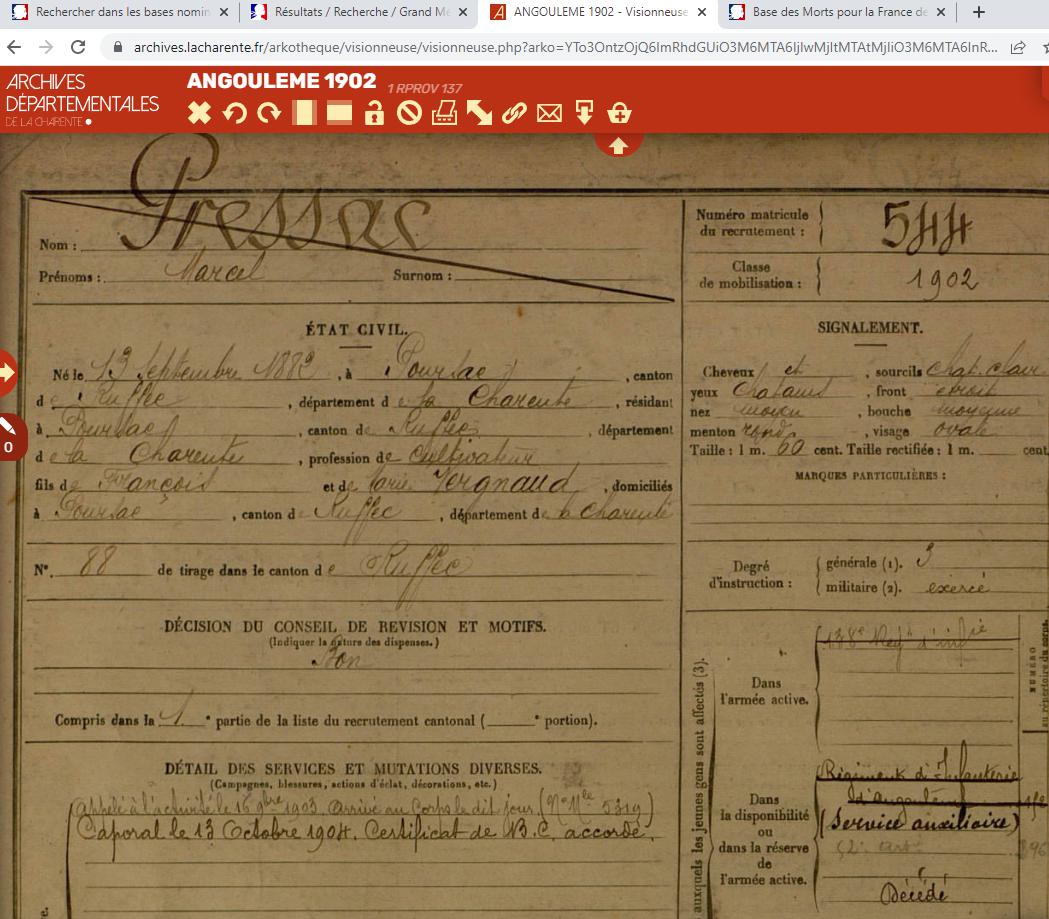 Rechercher dans les bases nomin
Résultats / Recherche / Grand Mé
ANGOULEME 1902 - Visionneuse
Base des Morts pour la France de
archives.lacharente.fr/arkotheque/visionneuse/visionneuse.php?arko=YTo3OntzOjQ6ImRhdGUiO3M6MTA6IjIwMjItMTAtMjIiO3M6MTA6InR...
ARCHIVES
DÉPARTEMENTALES
DE LA CHARENTE
ANGOULEME 1902 1 RPROV 137
0
Nom : Pressac
Prénoms : Marcel Surnom :
ÉTAT CIVIL.
Né le 13 Septembre 1882, à Poursac, canton
de Ruffec, département de la Charente, résidant
à Poursac, canton de Ruffec, département
de la Charente, profession de cultivateur
fils de François et de Marie Vergnaud, domiciliés
à Poursac, canton de Ruffec, département de la Charente
N°. 88 de tirage dans le canton de Ruffec
DÉCISION DU CONSEIL DE REVISION ET MOTIFS.
(Indiquer la nature des dispenses.)
Bon
Compris dans la 1.e partie de la liste du recrutement cantonal ( e portion).
DÉTAIL DES SERVICES ET MUTATIONS DIVERSES.
(Campagnes, blessures, actions d'éclat, décorations, etc.)
Appelé à l'activité le 16 9bre 1903. Arrivé au Corps le dit jour (No Mle 5319)
Caporal le 13 Octobre 1904. Certificat de B.C. accordé.
Numéro matricule
du recrutement : 544
Classe
de mobilisation : 1902
SIGNALEMENT.
Cheveux et, sourcils chat. clair
yeux chatains, front étroit
nez moyen, bouche moyenne
menton rond, visage ovale
Taille : 1 m. 60 cent. Taille rectifiée : 1 m. cent
MARQUES PARTICULIÈRES :
Degré
d'instruction :
générale (1). 3
militaire (2). exercé
auxquels les jeunes gens sont affectés (3).
Dans
l'armée active.
138e Regt d'infie
Dans
la disponibilité
ou
dans la réserve
de
l'armée active.
Régiment d'Infanterie
d'Angoulême
(Service auxiliaire)
Décédé
NUMÉRO
au répertoire du corps.